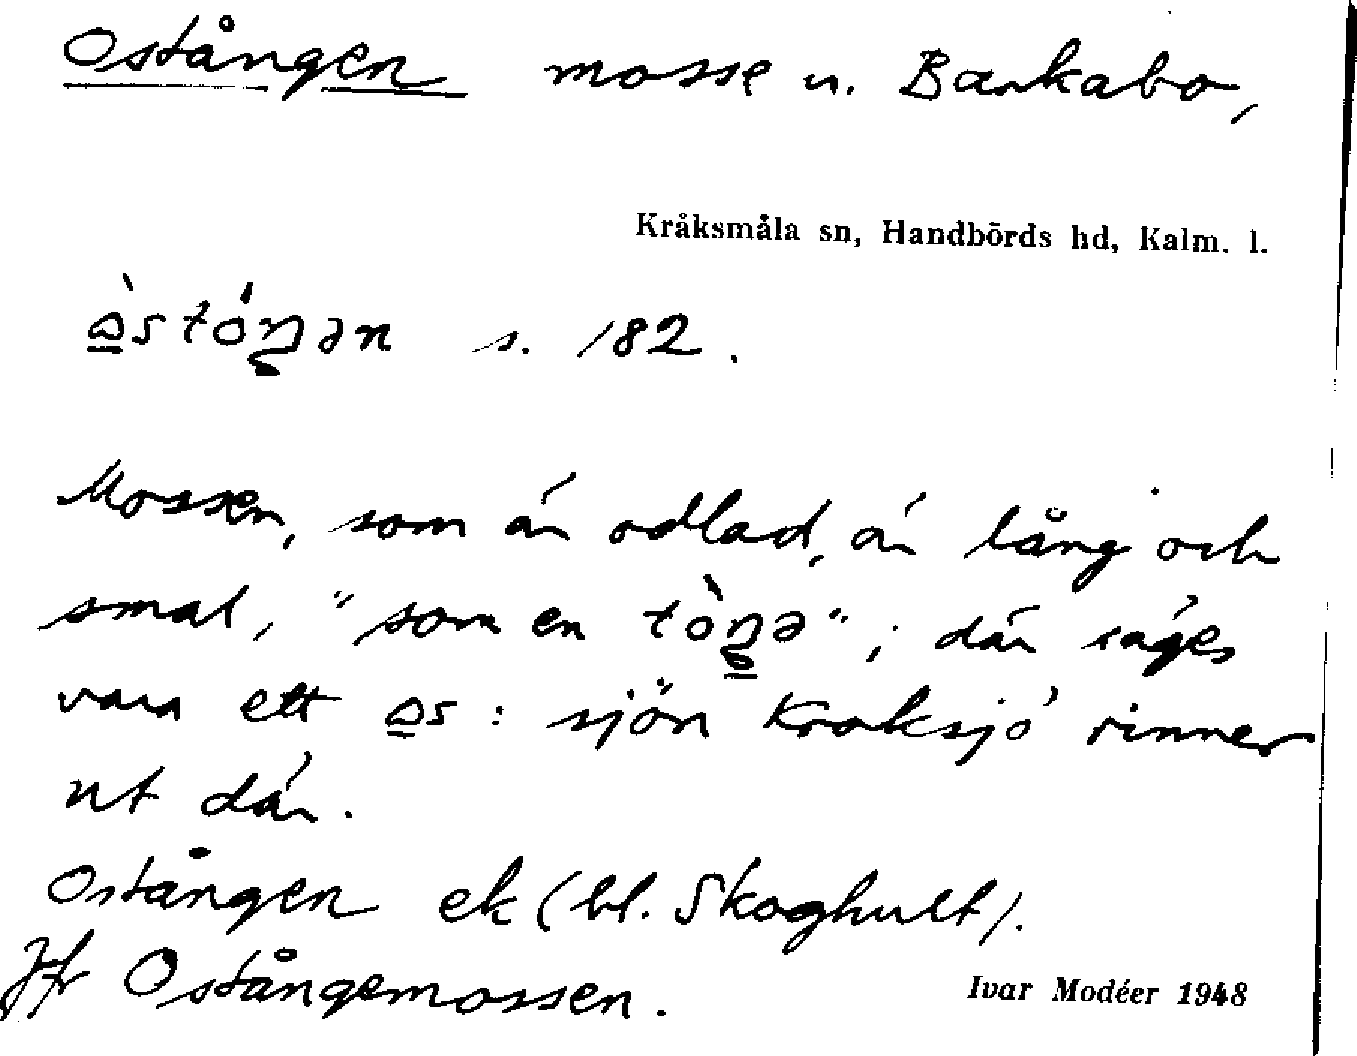 Ostången mosse n. Barkabo,
Kråksmåla sn, Handbörds hd, Kalm. l.
s. 182.
Mossen, som är odlad, är lång och
smal, "som en"; där säges
vara ett : sjön Kroksjö rinner
ut där.
Ostången ek (bl. Skoghult).
Jfr Ostångemossen.
Ivar Modéer 1948